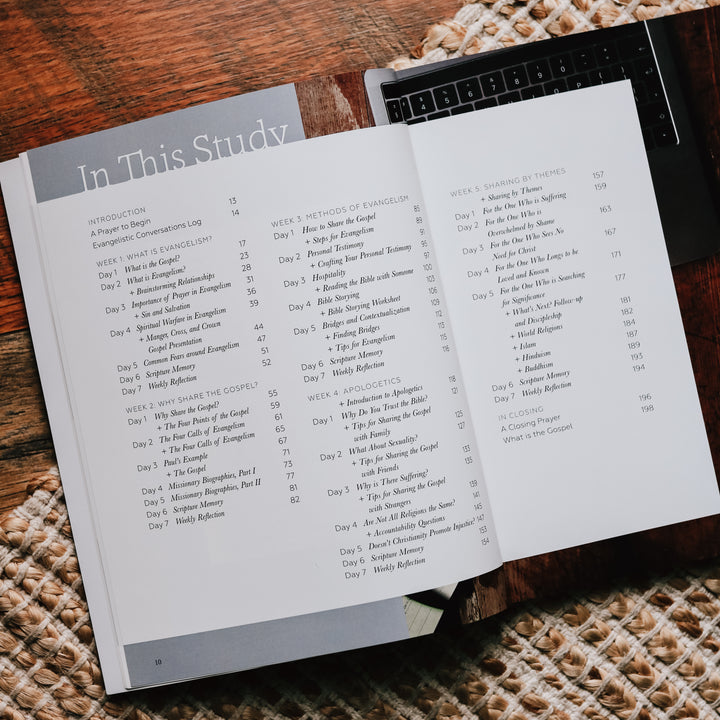 In This Study
INTRODUCTION
A Prayer to Begin 13
Evangelistic Conversations Log 14
WEEK 1: WHAT IS EVANGELISM?
Day 1 What is the Gospel? 17
Day 2 What is Evangelism? 23
+ Brainstorming Relationships 28
Day 3 Importance of Prayer in Evangelism 31
+ Sin and Salvation 36
Day 4 Spiritual Warfare in Evangelism 39
+ Manger, Cross, and Crown
Gospel Presentation 44
Day 5 Common Fears around Evangelism 47
Day 6 Scripture Memory 51
Day 7 Weekly Reflection 52
WEEK 2: WHY SHARE THE GOSPEL?
Day 1 Why Share the Gospel? 55
+ The Four Points of the Gospel 59
Day 2 The Four Calls of Evangelism 61
+ The Four Calls of Evangelism 65
Day 3 Paul's Example 67
+ The Gospel 71
Day 4 Missionary Biographies, Part I 73
Day 5 Missionary Biographies, Part II 77
Day 6 Scripture Memory 81
Day 7 Weekly Reflection 82
10
WEEK 3: METHODS OF EVANGELISM
Day 1 How to Share the Gospel 85
+ Steps for Evangelism 89
Day 2 Personal Testimony 91
+ Crafting Your Personal Testimony 95
Day 3 Hospitality 97
+ Reading the Bible with Someone 100
Day 4 Bible Storying 103
+ Bible Storying Worksheet 106
Day 5 Bridges and Contextualization 109
+ Finding Bridges
+ Tips for Evangelism
Day 6 Scripture Memory
Day 7 Weekly Reflection 115
WEEK 4: APOLOGETICS
+ Introduction to Apologetics 118
Day 1 Why Do You Trust the Bible? 121
+ Tips for Sharing the Gospel
with Family 125
Day 2 What About Sexuality? 127
+ Tips for Sharing the Gospel
with Friends 133
Day 3 Why is There Suffering? 135
+ Tips for Sharing the Gospel
with Strangers 139
Day 4 Are Not All Religions the Same? 141
+ Accountability Questions 145
Day 5 Doesn't Christianity Promote Injustice? 147
Day 6 Scripture Memory 153
Day 7 Weekly Reflection 154
WEEK 5: SHARING BY THEMES
+ Sharing by Themes 157
Day 1 For the One Who is Suffering 159
Day 2 For the One Who is
Overwhelmed by Shame 163
Day 3 For the One Who Sees No
Need for Christ 167
Day 4 For the One Who Longs to be
Loved and Known 171
Day 5 For the One Who is Searching
for Significance 177
+ What's Next? Follow-up
and Discipleship 181
+ World Religions 182
+ Islam 184
+ Hinduism 187
+ Buddhism 189
Day 6 Scripture Memory 193
Day 7 Weekly Reflection 194
IN CLOSING
A Closing Prayer 196
What is the Gospel 198